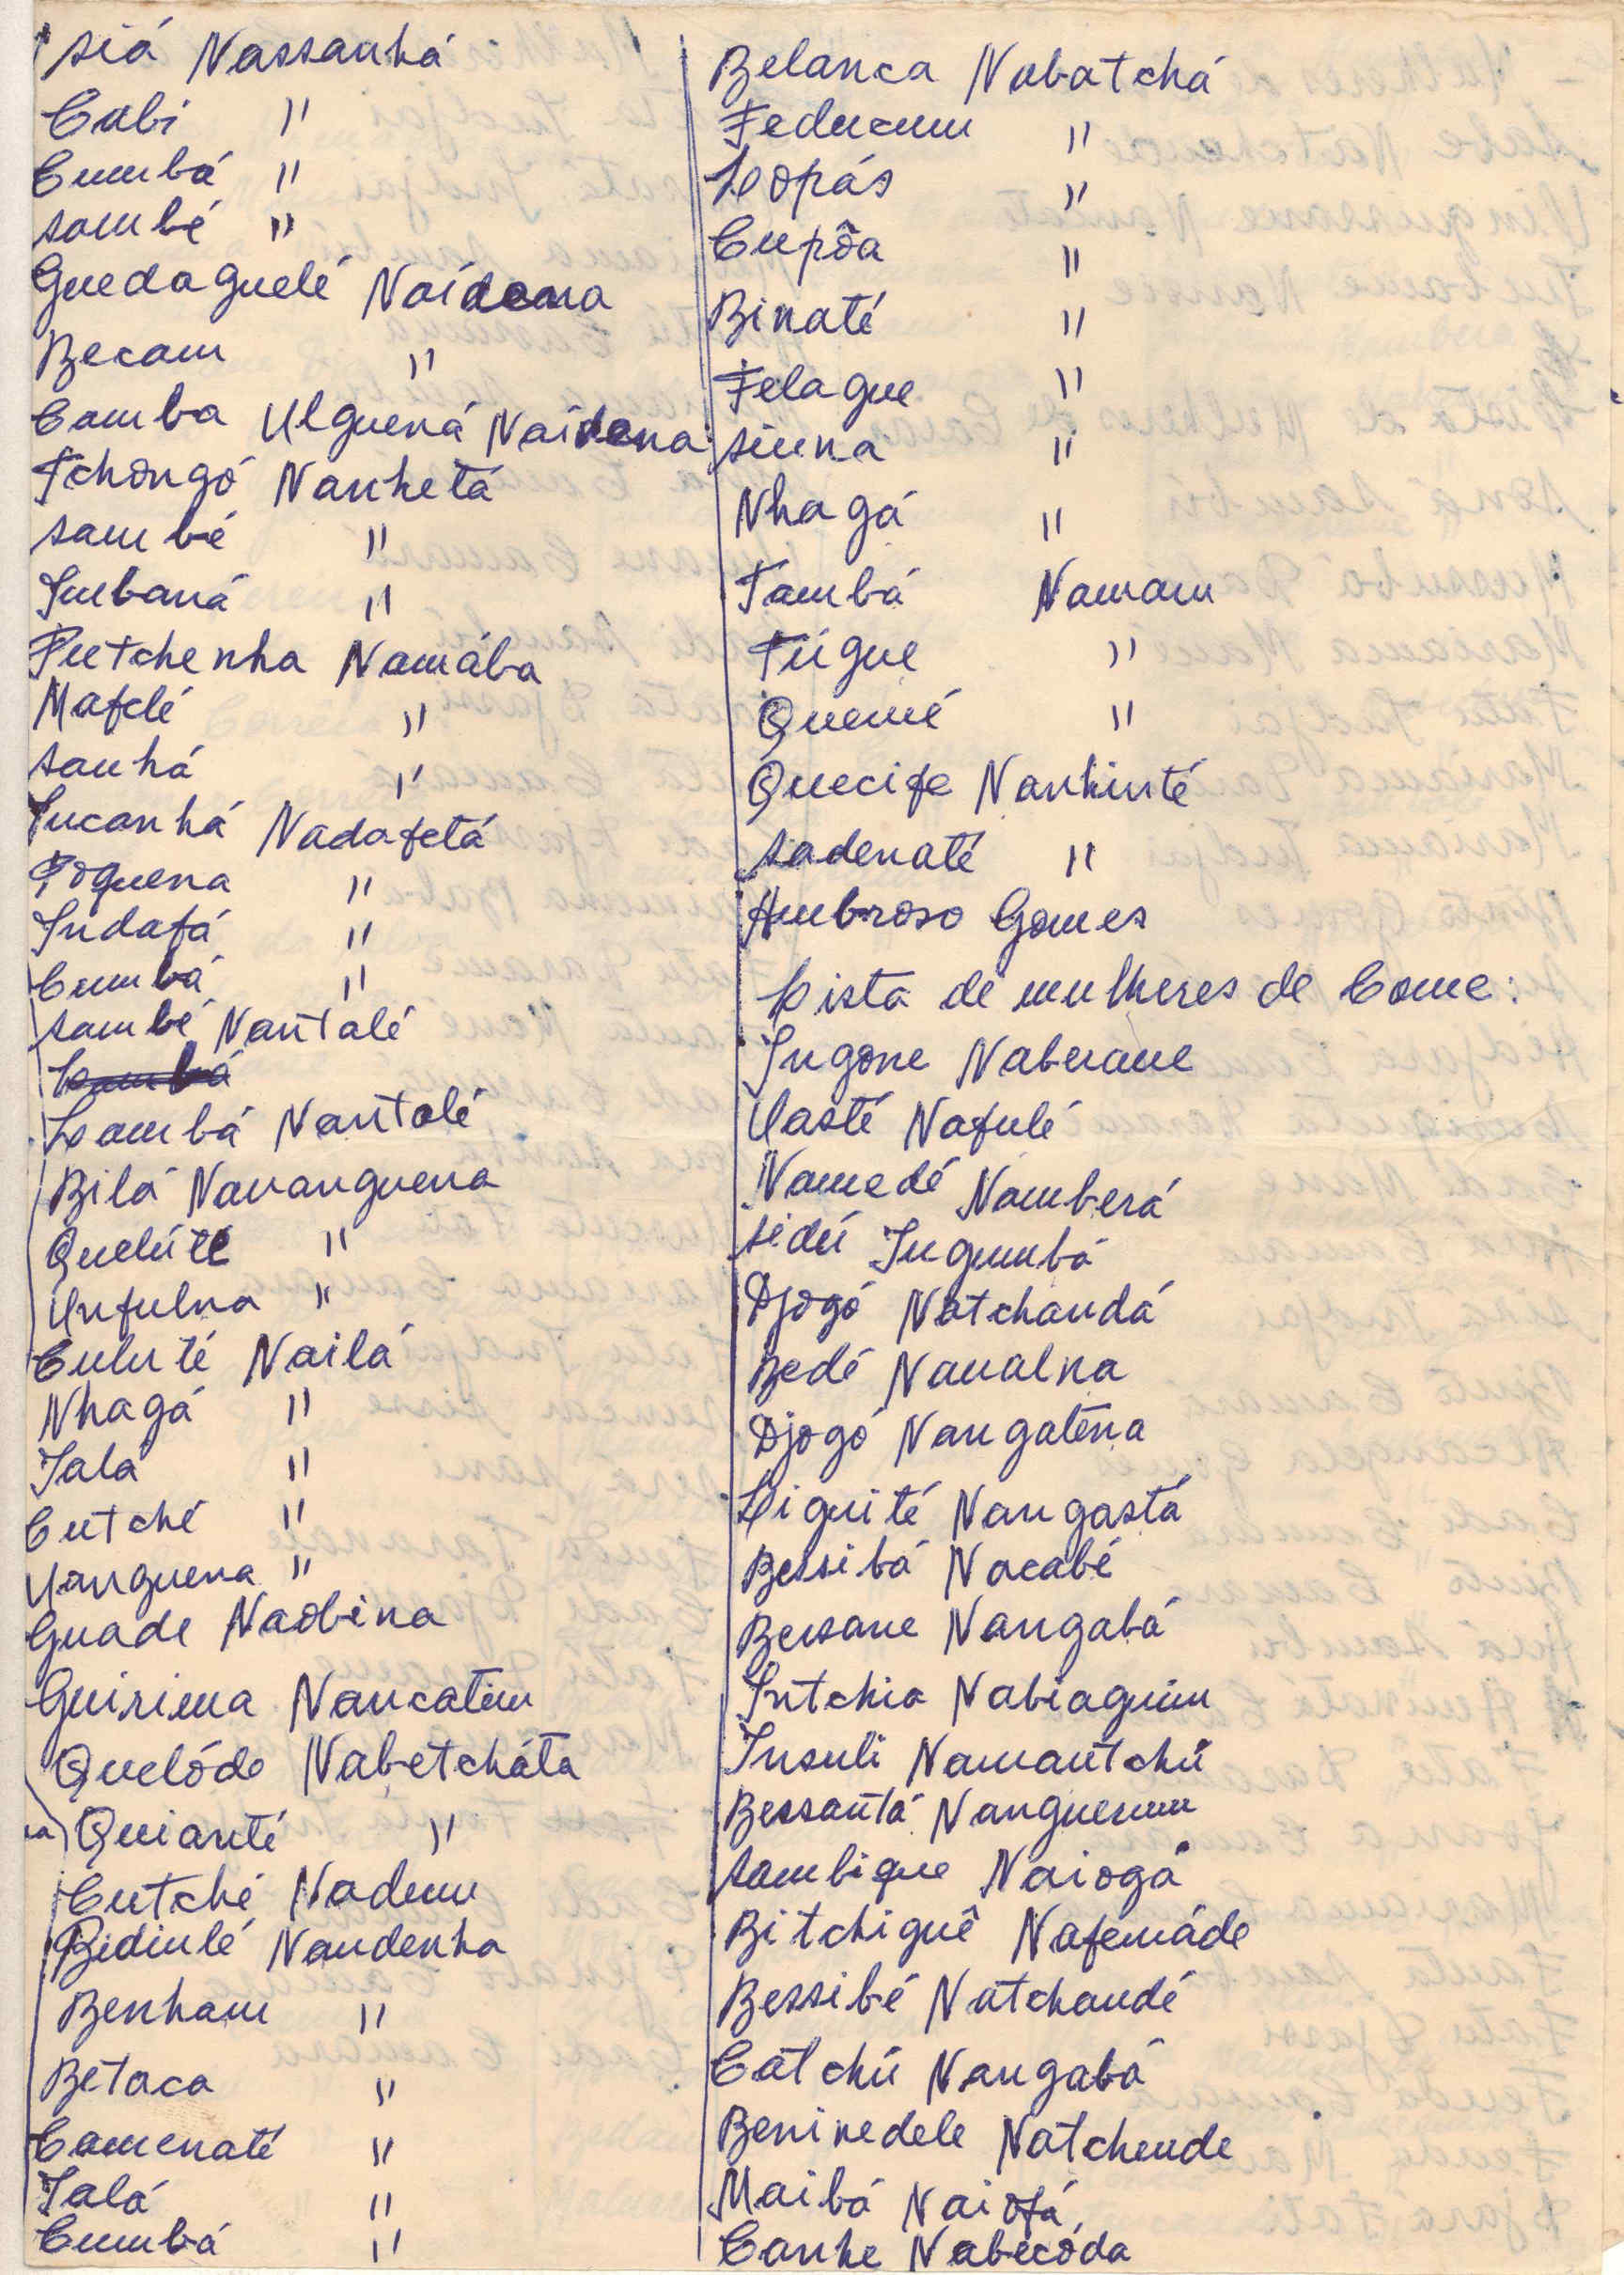 Siá Nassanhá
Cubi "
Cumbá "
Sambé "
Guedaguelé Naídena
Becam "
Camba Ulguená Naídena
Tchongó Nanhetá
Sambé "
Imbaná "
Putchenha Namába
Mafelé "
Sanhá "
Incanhá Nadafetá
Poquena "
Indafá "
Cumbá "
Sambé Nantalé
Lambá Nantalé
Bilá Nananguena
Quelúte "
Unfulna "
Culuté Nailá
Nhagá "
Ialá "
Cutché "
Uanguena "
Guade Naobina
Guirima Nancatim
Quelóde Nabetcháta
Quianté "
Cutché Nadum
Bidiulé Nandenha
Benham "
Betaca "
Camenaté "
Ialá "
Cumbá "
Belanca Nabatchá
Feducum "
Lopás "
Cupôa "
Binaté "
Felague "
Siuna "
Nhagá "
Tambá Namam
Túgue "
Quemé "
Quecife Nanhinté
Sadenaté "
Ambroso Gomes
Lista de mulheres de Come:
Ingone Naberane
Uasté Nafulé
Namedé Namberá
Sidú Ingumbá
Djogó Natchandá
Bedé Naualna
Djogó Nangatêna
Liguité Nangastá
Bessibá Nacabé
Bersane Nangabá
Intchia Nabiaguim
Insuli Namantchú
Bessantá Nanguenum
Sambique Naiogá
Bitchiguê Nafemáde
Bessibé Natchandé
Catchú Nangabá
Beninedele Natchende
Maibá Naiofá
Canhe Nabecóda